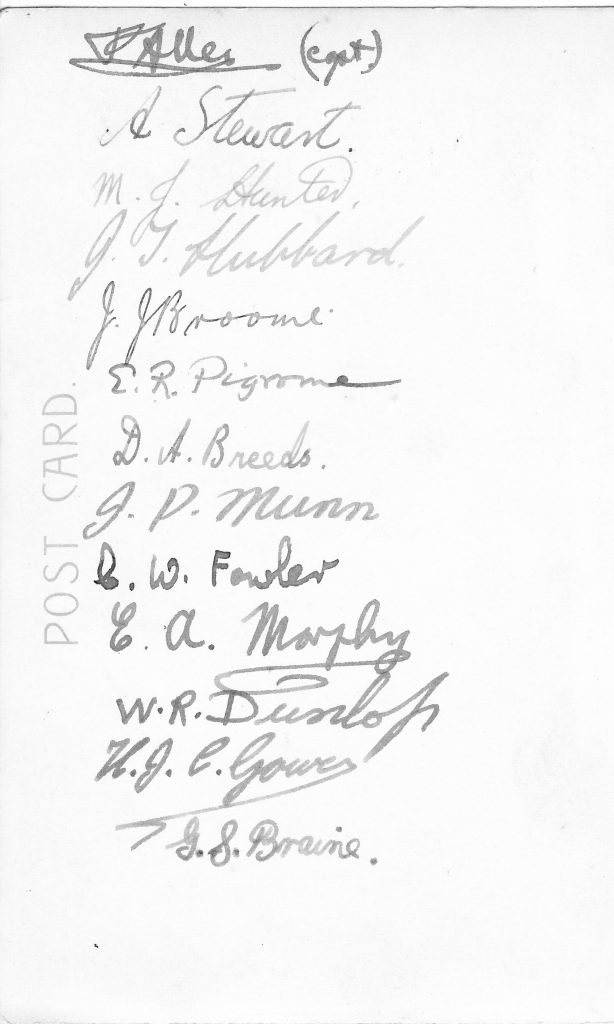 P Allen (capt)
A Stewart.
M. J. Hunter.
J. T. Hubbard.
J. J Broome
E. R. Pigrome
D. A. Breeds.
J. P. Munn
C. W. Fowler
E. A. Morphy
W. R. Dunlop
H. J. C. Gower
G. S. Braine.
POST CARD.